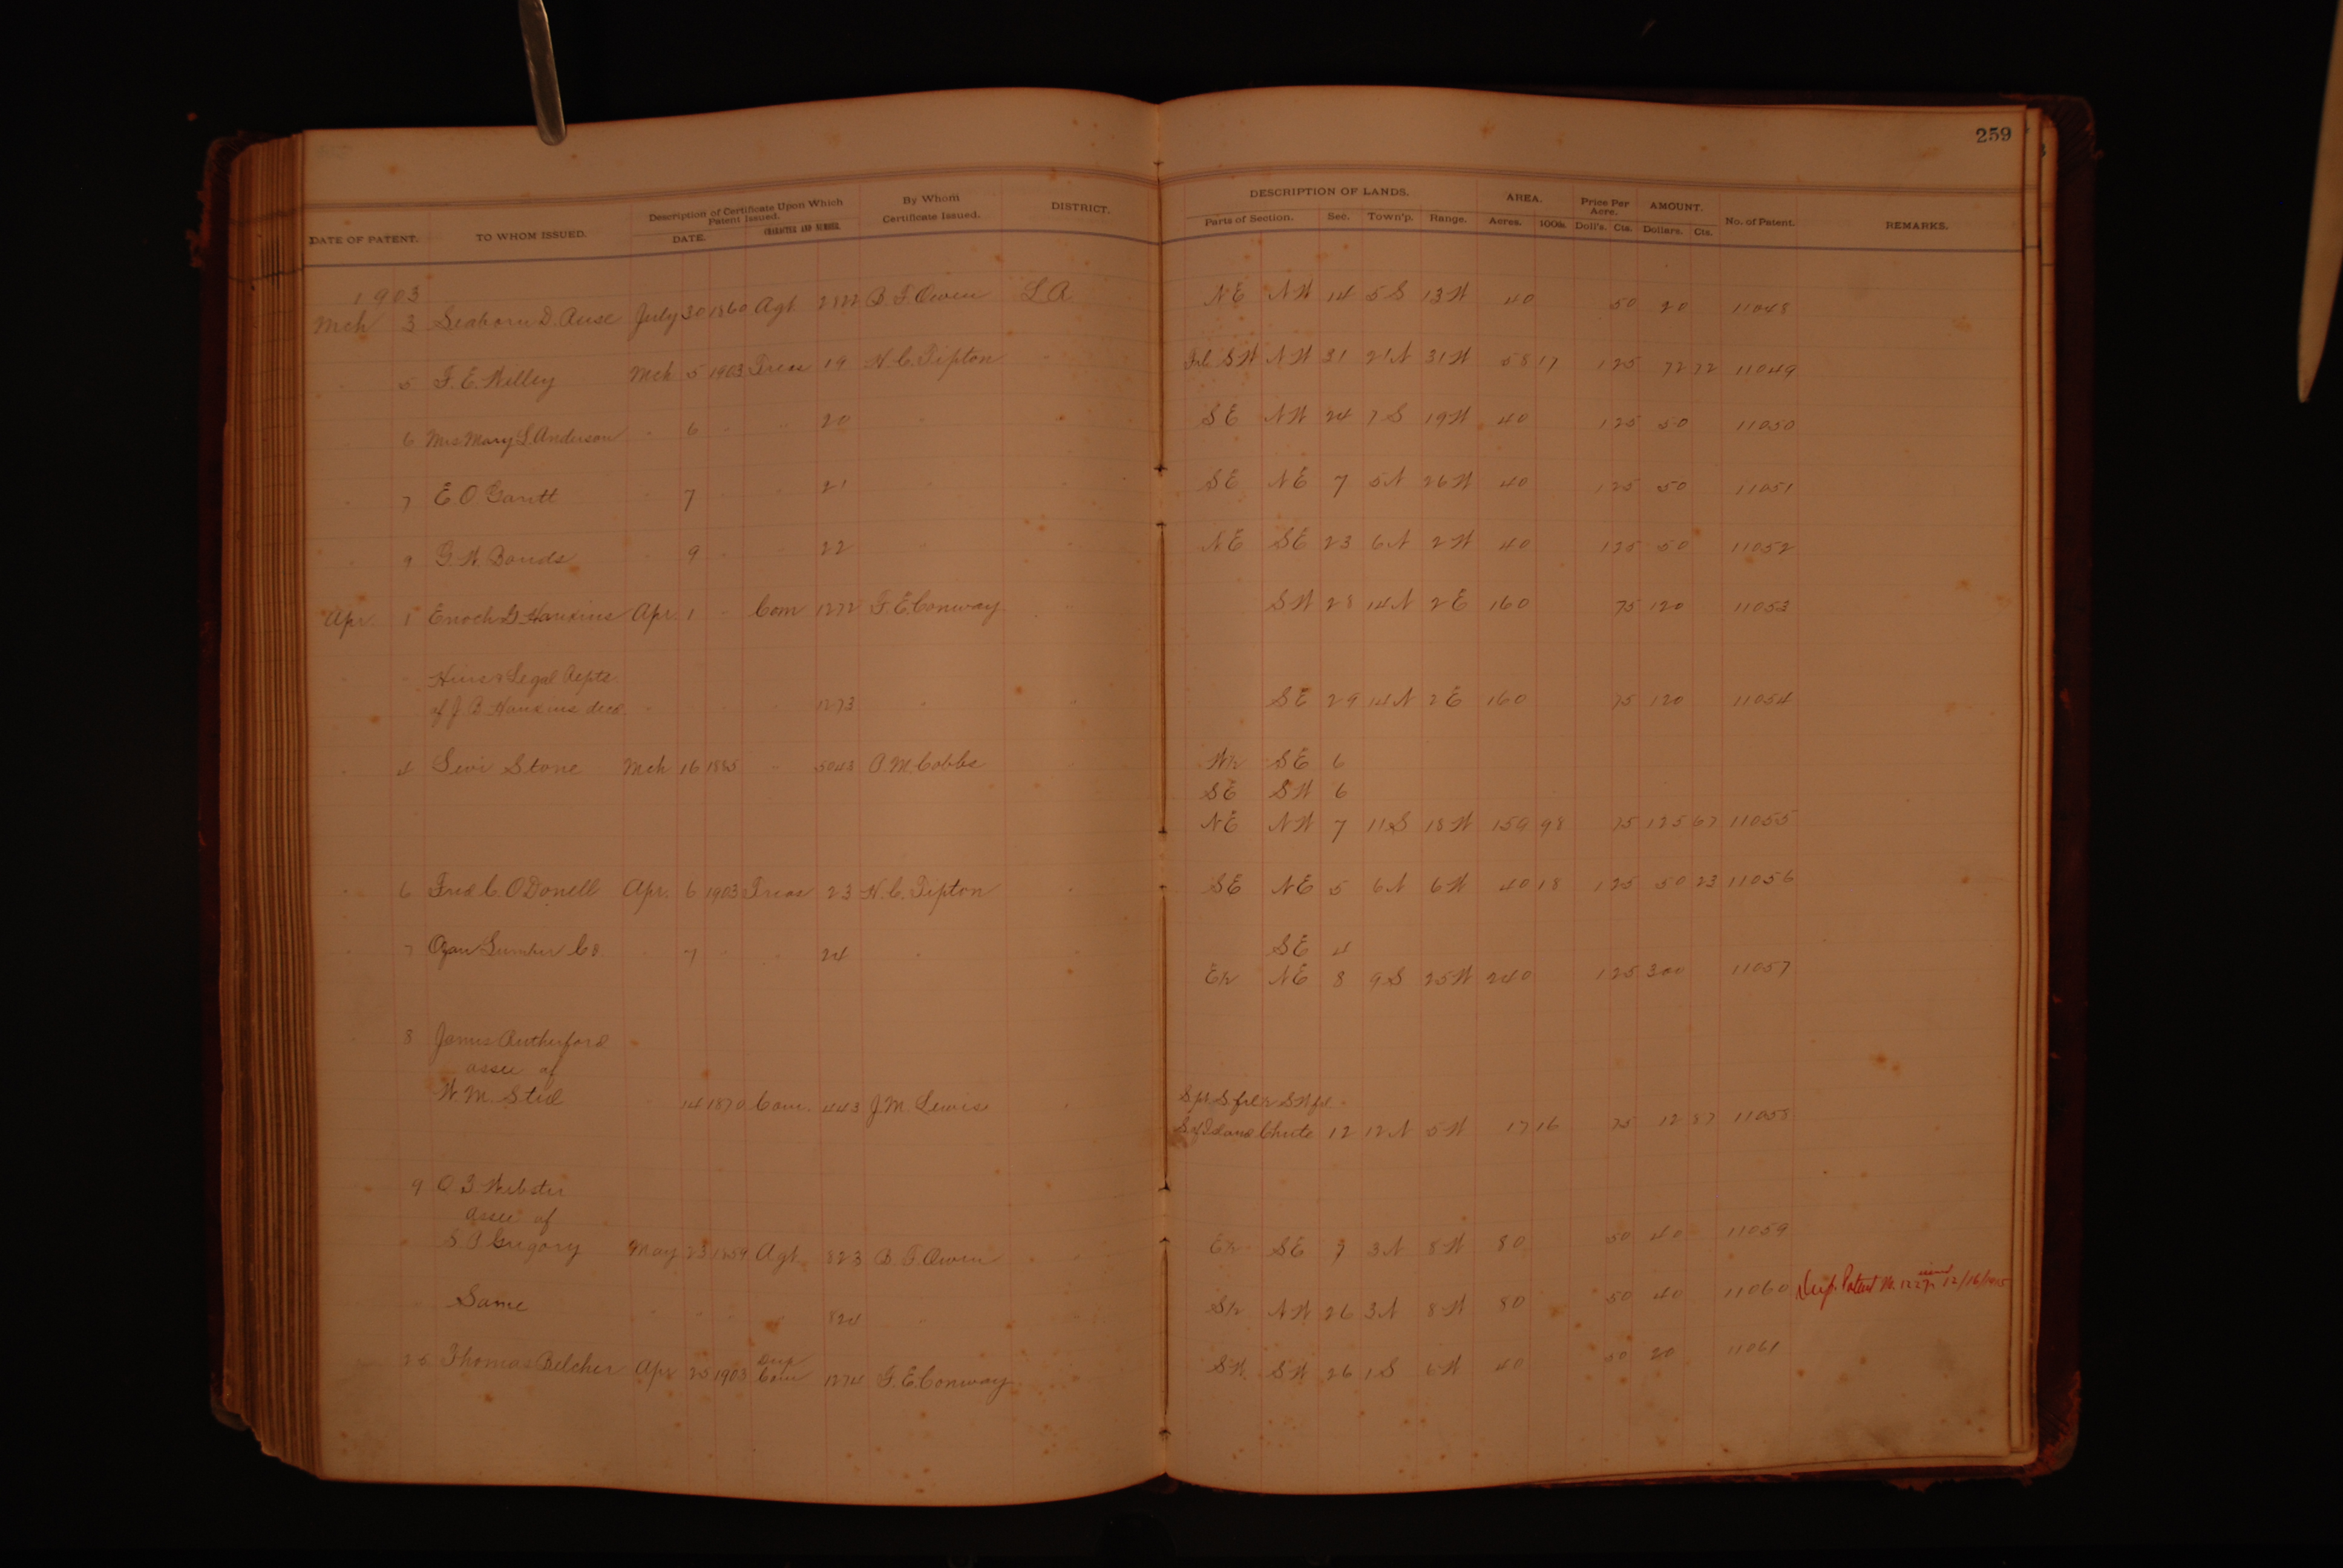 259
DATE OF PATENT. TO WHOM ISSUED. Description of Certificate Upon Which Patent Issued. DATE. CHARACTER AND NUMBER. By Whom Certificate Issued. DISTRICT. DESCRIPTION OF LANDS. Parts of Section. Sec. Town'p. Range. AREA. Acres. 100ths. Price Per Acre. Doll's. Cts. AMOUNT. Dollars. Cts. No. of Patent. REMARKS.
1903
Mch 3 Seahorn D. July 30 1860 Agt B. F. Owen L R NE NW 14 5 S 13 W 40 50 20 11048
" 5 F. E. Welley Mch 5 1903 Treas 19 H. C. Tipton " Frl. SW NW 31 21 N 31 W 58 17 1 25 72 72 11049
" 6 Mrs Mary L Anderson " 6 " " 20 " " SE NW 24 7 S 19 W 40 1 25 50 11050
" 7 E O Gantt " 7 " " 21 " " SE NE 7 5 N 26 W 40 1 25 50 11051
" 9 G. W. Bonds " 9 " " 22 " " NE SE 23 6 N 2 W 40 1 25 50 11052
Apr. 1 Enoch Hankins Apr. 1 " Com 1272 F. E. Conway " SW 28 14 N 2 E 160 75 120 11053
" " Heirs & Legal Repts
of J. B. Hankins decd. " " " " 1273 " " SE 29 14 N 2 E 160 75 120 11054
" 4 Levi Stone Mch 16 1885 " 5043 A. M. Cobbs " W½ SE 6
SE SW 6
NE NW 7 11 S 18 W 159 98 75 125 67 11055
" 6 Fred C. O Donell Apr. 6 1903 Treas 23 H. C. Tipton " SE NE 5 6 N 6 W 40 18 1 25 50 23 11056
" 7 Ozan Lumber Co. " 7 " " 24 " SE 4
E½ NE 8 9 S 25 W 240 1 25 300 11057
8 James Rutherford
assee of
W M. Steel " 14 1870 Com. 443 J. M. Lewis " S pt S frl ½ SW frl
S of Island Chute 12 12 N 5 W 17 16 75 12 87 11058
9 Webster
assee of
Gregory May 23 1859 Agt 823 B. F. Owen " E½ SE 7 3 N 8 W 80 50 40 11059
Same " " " " 824 " " S½ NW 26 3 N 8 W 80 50 40 11060 Dup. Patent No. issued 12/16/
25 Thomas Belcher Apr 25 1903 Dup Com 1274 F. E. Conway SW SW 26 1 S 6 W 40 50 20 11061